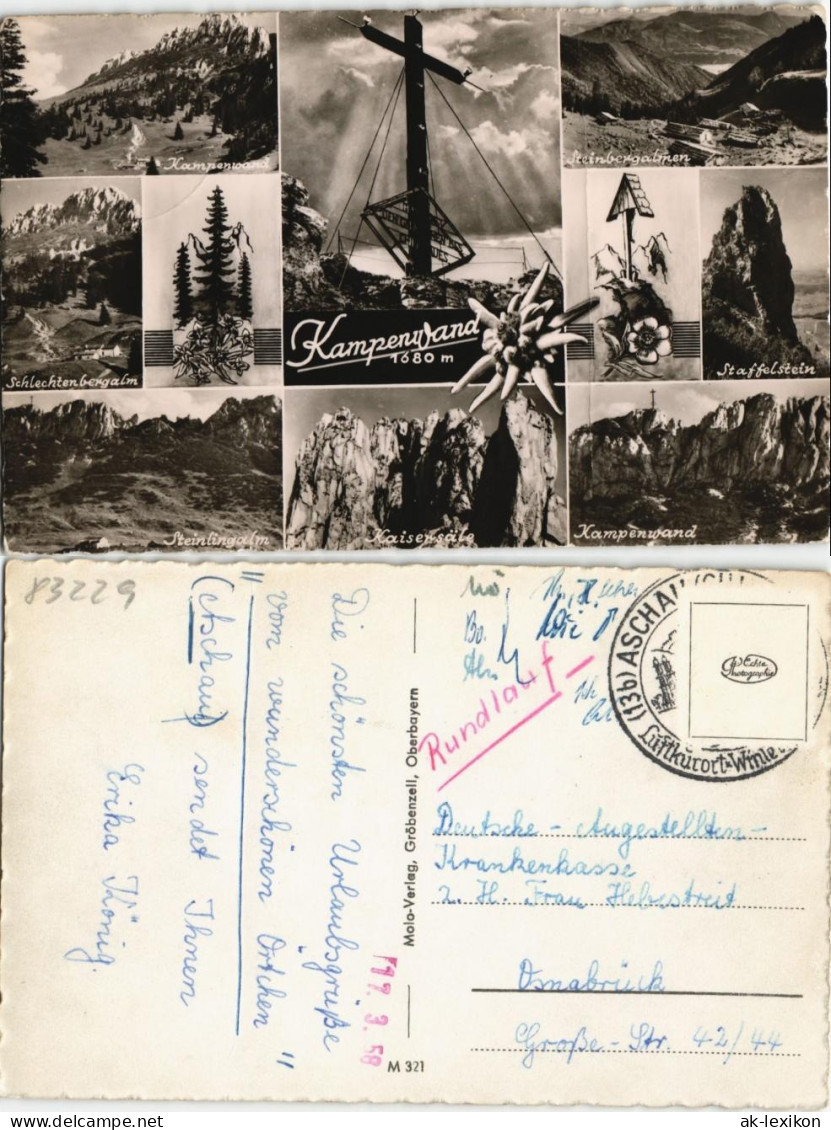 Kampenwand
Steinbergalmen
Kampenwand
1680 m
Schlechtenbergalm
Staffelstein
Steinlingalm
Kaisersäle
Kampenwand
83229
Die schönsten Urlaubsgrüße
vom wunderschönen Örtchen
"(Aschau)" sendet Ihnen
Erika König.
Molo-Verlag, Gröbenzell, Oberbayern
M 321
Rundlauf
(13b) ASCHAU
Luftkurort
Echte
Photographie
Deutsche-Angestellten-
Krankenkasse
z. H. Frau Hebestreit
Osnabrück
Große-Str. 42/44
ak-lexikon.de
ak-lexikon